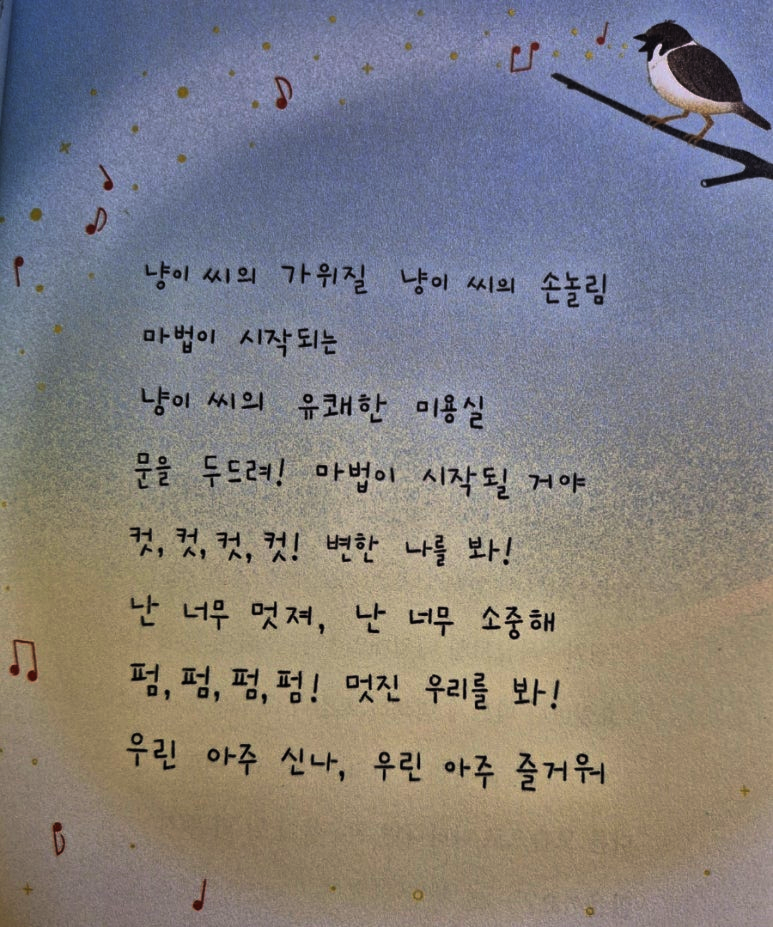 냥이 씨의 가위질 냥이 씨의 손놀림
마법이 시작되는
냥이 씨의 유쾌한 미용실
문을 두드려! 마법이 시작될 거야
컷, 컷, 컷, 컷! 변한 나를 봐!
난 너무 멋져, 난 너무 소중해
펌, 펌, 펌, 펌! 멋진 우리를 봐!
우린 아주 신나, 우린 아주 즐거워